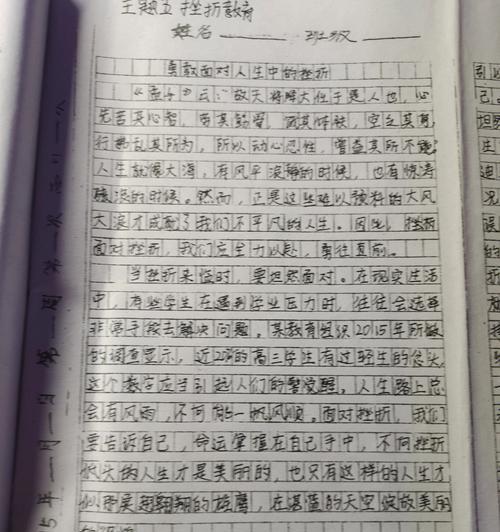 主题五 挫折教育
姓名 班级
勇敢面对人生中的挫折
《孟子》云：“故天将降大任于是人也，必
先苦其心智，劳其筋骨，饿其体肤，空乏其身，
行拂乱其所为，所以动心忍性，曾益其所不能。
人生就像大海，有风平浪静的时候，也有惊涛
骇浪的时候。然而，正是这些难以预料的大风
大浪才成就了我们不平凡的人生。因此，
面对挫折，我们应全力以赴，勇往直前。
当挫折来临时，要坦然面对。在现实生活
中，有些学生在遇到学业压力时，往往会选择
非常手段去解决问题。某教育组织2015年所做
的调查显示，近的高三学生有过轻生的念头。
这个数字应当引起人们的警觉醒。人生路上总
会有风雨，不可能一帆风顺。面对挫折，我们
要告诉自己，命运掌握在自己手中，不向挫折
低头的人生才是美丽的，也只有这样的人生才
展翅翱翔的雄鹰，在湛蓝的天空绽放美丽